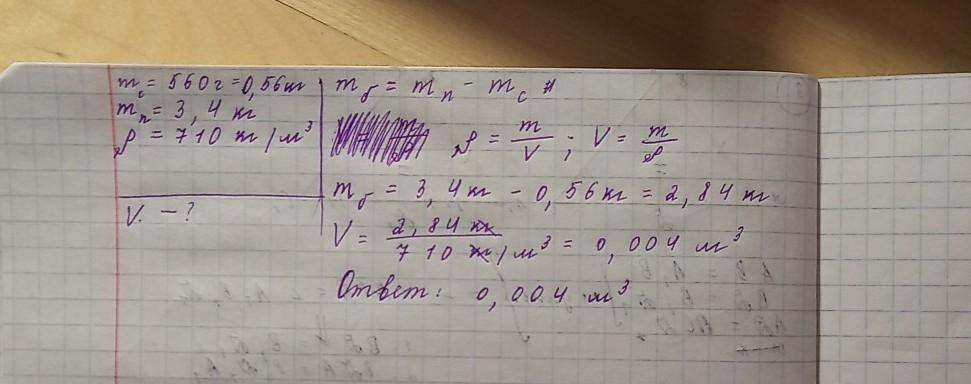 m_c = 560 г = 0,56 кг
m_п = 3,4 кг
ρ = 710 кг/м³
V. - ?
m_б = m_п - m_c
ρ = m/V ; V = m/ρ
m_б = 3,4 кг - 0,56 кг = 2,84 кг
V = 2,84 кг / 710 кг/м³ = 0,004 м³
Ответ: 0,004 м³